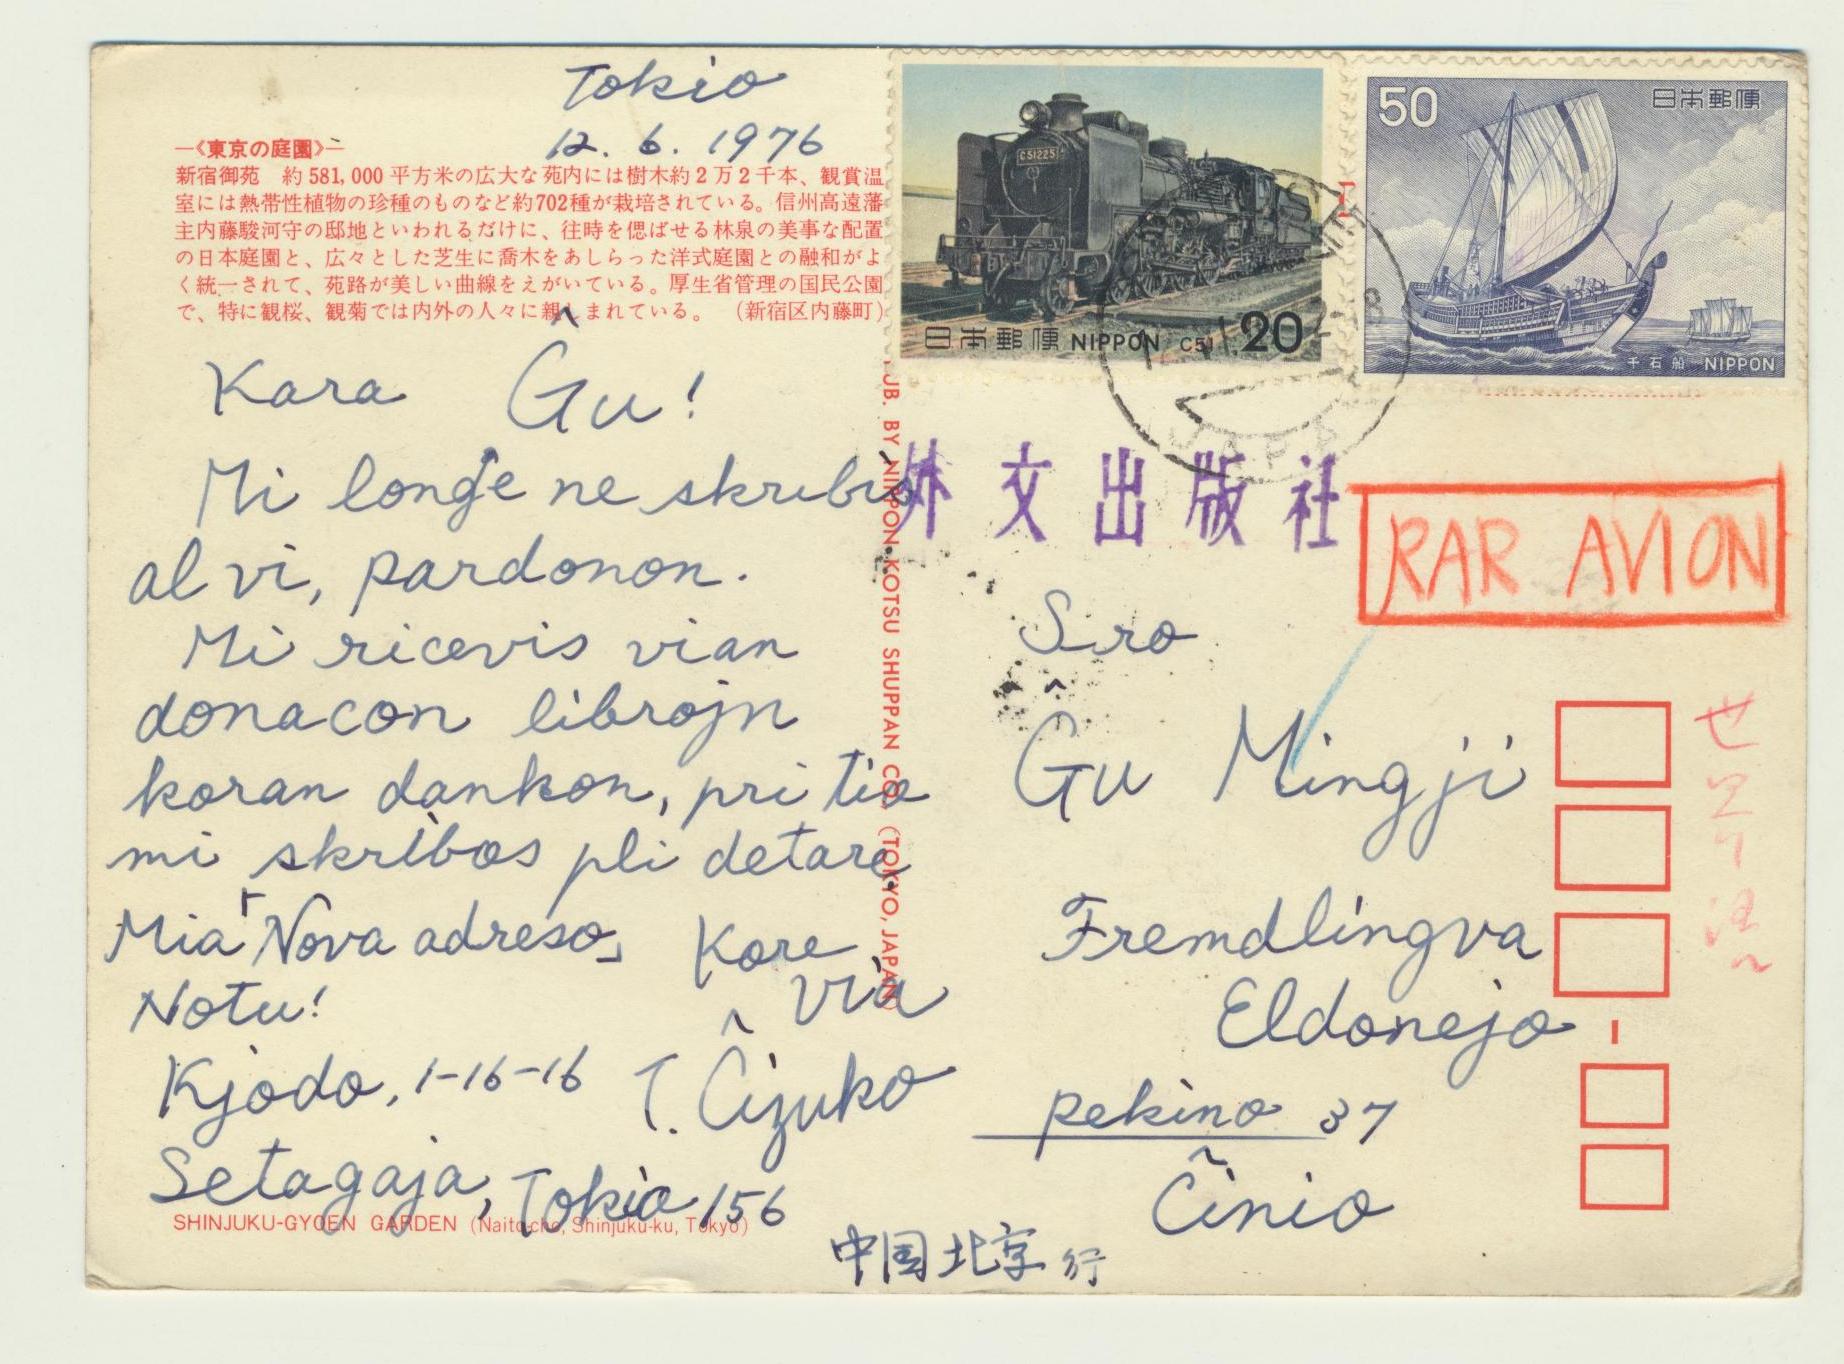 Tokio
12. 6. 1976
―《東京の庭園》―
新宿御苑　約581,000平方米の広大な苑内には樹木約2万2千本、観賞温
室には熱帯性植物の珍種のものなど約702種が栽培されている。信州高遠藩
主内藤駿河守の邸地といわれるだけに、往時を偲ばせる林泉の美事な配置
の日本庭園と、広々とした芝生に喬木をあしらった洋式庭園との融和がよ
く統一されて、苑路が美しい曲線をえがいている。厚生省管理の国民公園
で、特に観桜、観菊では内外の人々に親しまれている。（新宿区内藤町）
Kara Ĝu!
Mi longe ne skribis
al vi, pardonon.
Mi ricevis vian
donacon librojn
koran dankon, pri tio
mi skribos pli detare
Mia「Nova adreso」
Notu!
Kjodo, 1-16-16
Setagaja, Tokio 156
Kore
via
T. Ĉizuko
SHINJUKU-GYOEN GARDEN (Naito-cho, Shinjuku-ku, Tokyo)
UB. BY NIPPON KOTSU SHUPPAN CO., (TOKYO, JAPAN)
C51225
日本郵便 NIPPON C51 20
50 日本郵便
千石船 NIPPON
JAPAN
外文出版社
RAR AVION
S-ro
Ĝu Mingji
Fremdlingva
Eldonejo
Pekino 37
Ĉinio
中国北京行